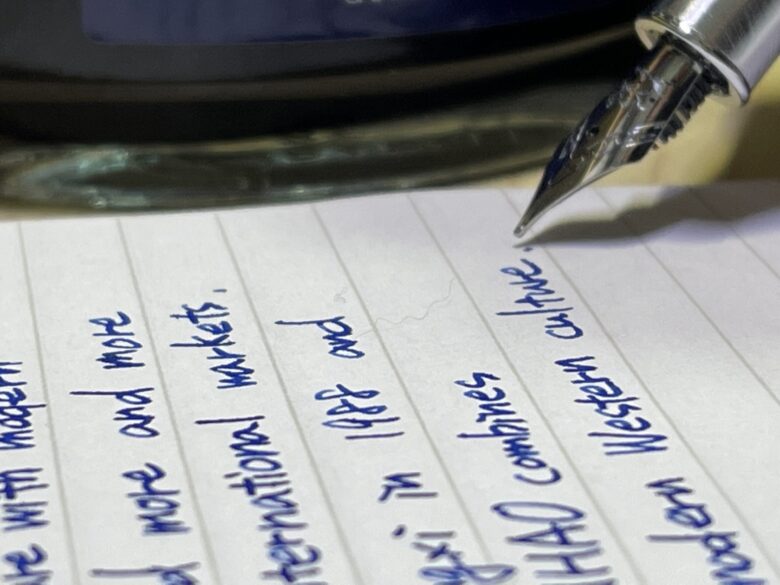 re with modern
d more and more
ternational markets.
gxi in 1988 and
HAO combines
modern Western culture.